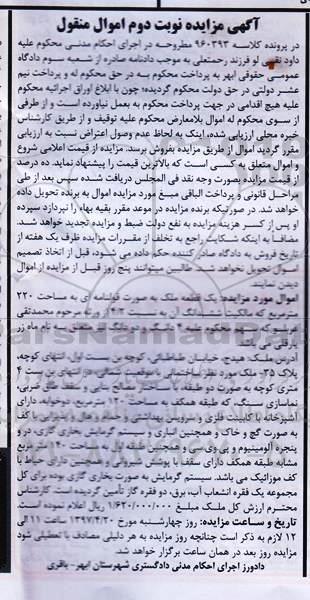 آگهی مزایده نوبت دوم اموال منقول
در پرونده کلاسه ۹۶۰۳۹۳ مطروحه در اجرای احکام مدنی محکوم علیه
داود نقیبی لو فرزند رحمتعلی به موجب دادنامه صادره از شعبه سوم دادگاه
عمومی حقوقی ابهر به پرداخت محکوم به در حق محکوم له و پرداخت نیم
عشر دولتی در حق دولت محکوم گردیده؛ چون با ابلاغ اوراق اجرائیه محکوم
علیه هیچ اقدامی در جهت پرداخت محکوم به بعمل نیاورده است و از طرفی
از سوی محکوم له اموال بلامعارض محکوم علیه توقیف و از طریق کارشناس
خبره محلی ارزیابی شده، اینک به لحاظ عدم وصول اعتراض نسبت به ارزیابی
مقرر گردید اموال از طریق مزایده بفروش برسد. مزایده از قیمت اعلامی شروع
و اموال متعلق به کسی است که بالاترین قیمت را پیشنهاد نماید. ده درصد
از قیمت مزایده بصورت وجه نقد فی المجلس دریافت شده سپس بعد از طی
مراحل قانونی و پرداخت الباقی مبلغ مورد مزایده اموال به برنده تحویل داده
خواهد شد. در صورتیکه برنده مزایده در موعد مقرر بقیه بهاء را نپردازد سپرده
او پس از کسر هزینه مزایده به نفع دولت ضبط و مزایده تجدید خواهد شد.
مضافاً به اینکه شکایت راجع به تخلف از مقررات مزایده ظرف یک هفته از
تاریخ فروش به دادگاه صادر کننده حکم داده می شود، قبل از اتخاذ تصمیم
اموال تحویل نخواهد شد. طالبین میتوانند پنج روز قبل از مزایده از اموال
دیدن نمایند.
اموال مورد مزایده: یک قطعه ملک به صورت قولنامه ای به مساحت ۲۲۰
مترمربع که مالکیت ششدانگ آن به نسبت ۴/۲ از ورثه مرحوم محمدتقی
محکوم علیه ۴ دانگ و دو دانگ آن متعلق به نام ماه زر
آدرس ملک: هیدج، خیابان طباطبائی، کوچه بن بست اول، انتهای کوچه،
پلاک ۳۵- ملک مورد نظر ساختمانی با موقعیت شمالی، در انتهای بن بست ۴
متری کوچه به صورت دو طبقه، با ساختار مصالح بنایی و سقف طاق ضربی،
نماسازی سنگ، که طبقه همکف به مساحت ۱۲۰ مترمربع، دوخوابه، دارای
آشپزخانه با کابینت فلزی و سرویس بهداشتی و حمام و هال و پذیرایی با کف
به صورت گچ و خاک و همچنین انباری و سیستم گرمایش بخاری گازی، در و
پنجره آلومینیوم و پی وی سی و همچنین طبقه اول به مساحت ۱۴۰ مترمربع
مشابه طبقه همکف دارای سقف با پوشش شیروانی و همچنین دارای حیاط با
کف موزائیک می باشد. سیستم گرمایش به صورت بخاری گازی بوده برای کل
مجموعه یک فقره انشعاب آب، برق، دو فقره گاز تأمین گردیده است. کارشناس
محترم ارزش کل ملک مبلغ ۱/۶۲۰/۰۰۰/۰۰۰ ریال اعلام نموده است.
تاریخ و ساعت مزایده: روز چهارشنبه مورخ ۱۳۹۷/۴/۲۰ ساعت ۱۱ الی
۱۲ لازم به ذکر است چنانچه روز مزایده به هر دلیلی مصادف با تعطیلی شود
مزایده روز بعد در همان ساعت برگزار خواهد شد.
دادورز اجرای احکام مدنی دادگستری شهرستان ابهر- باقری